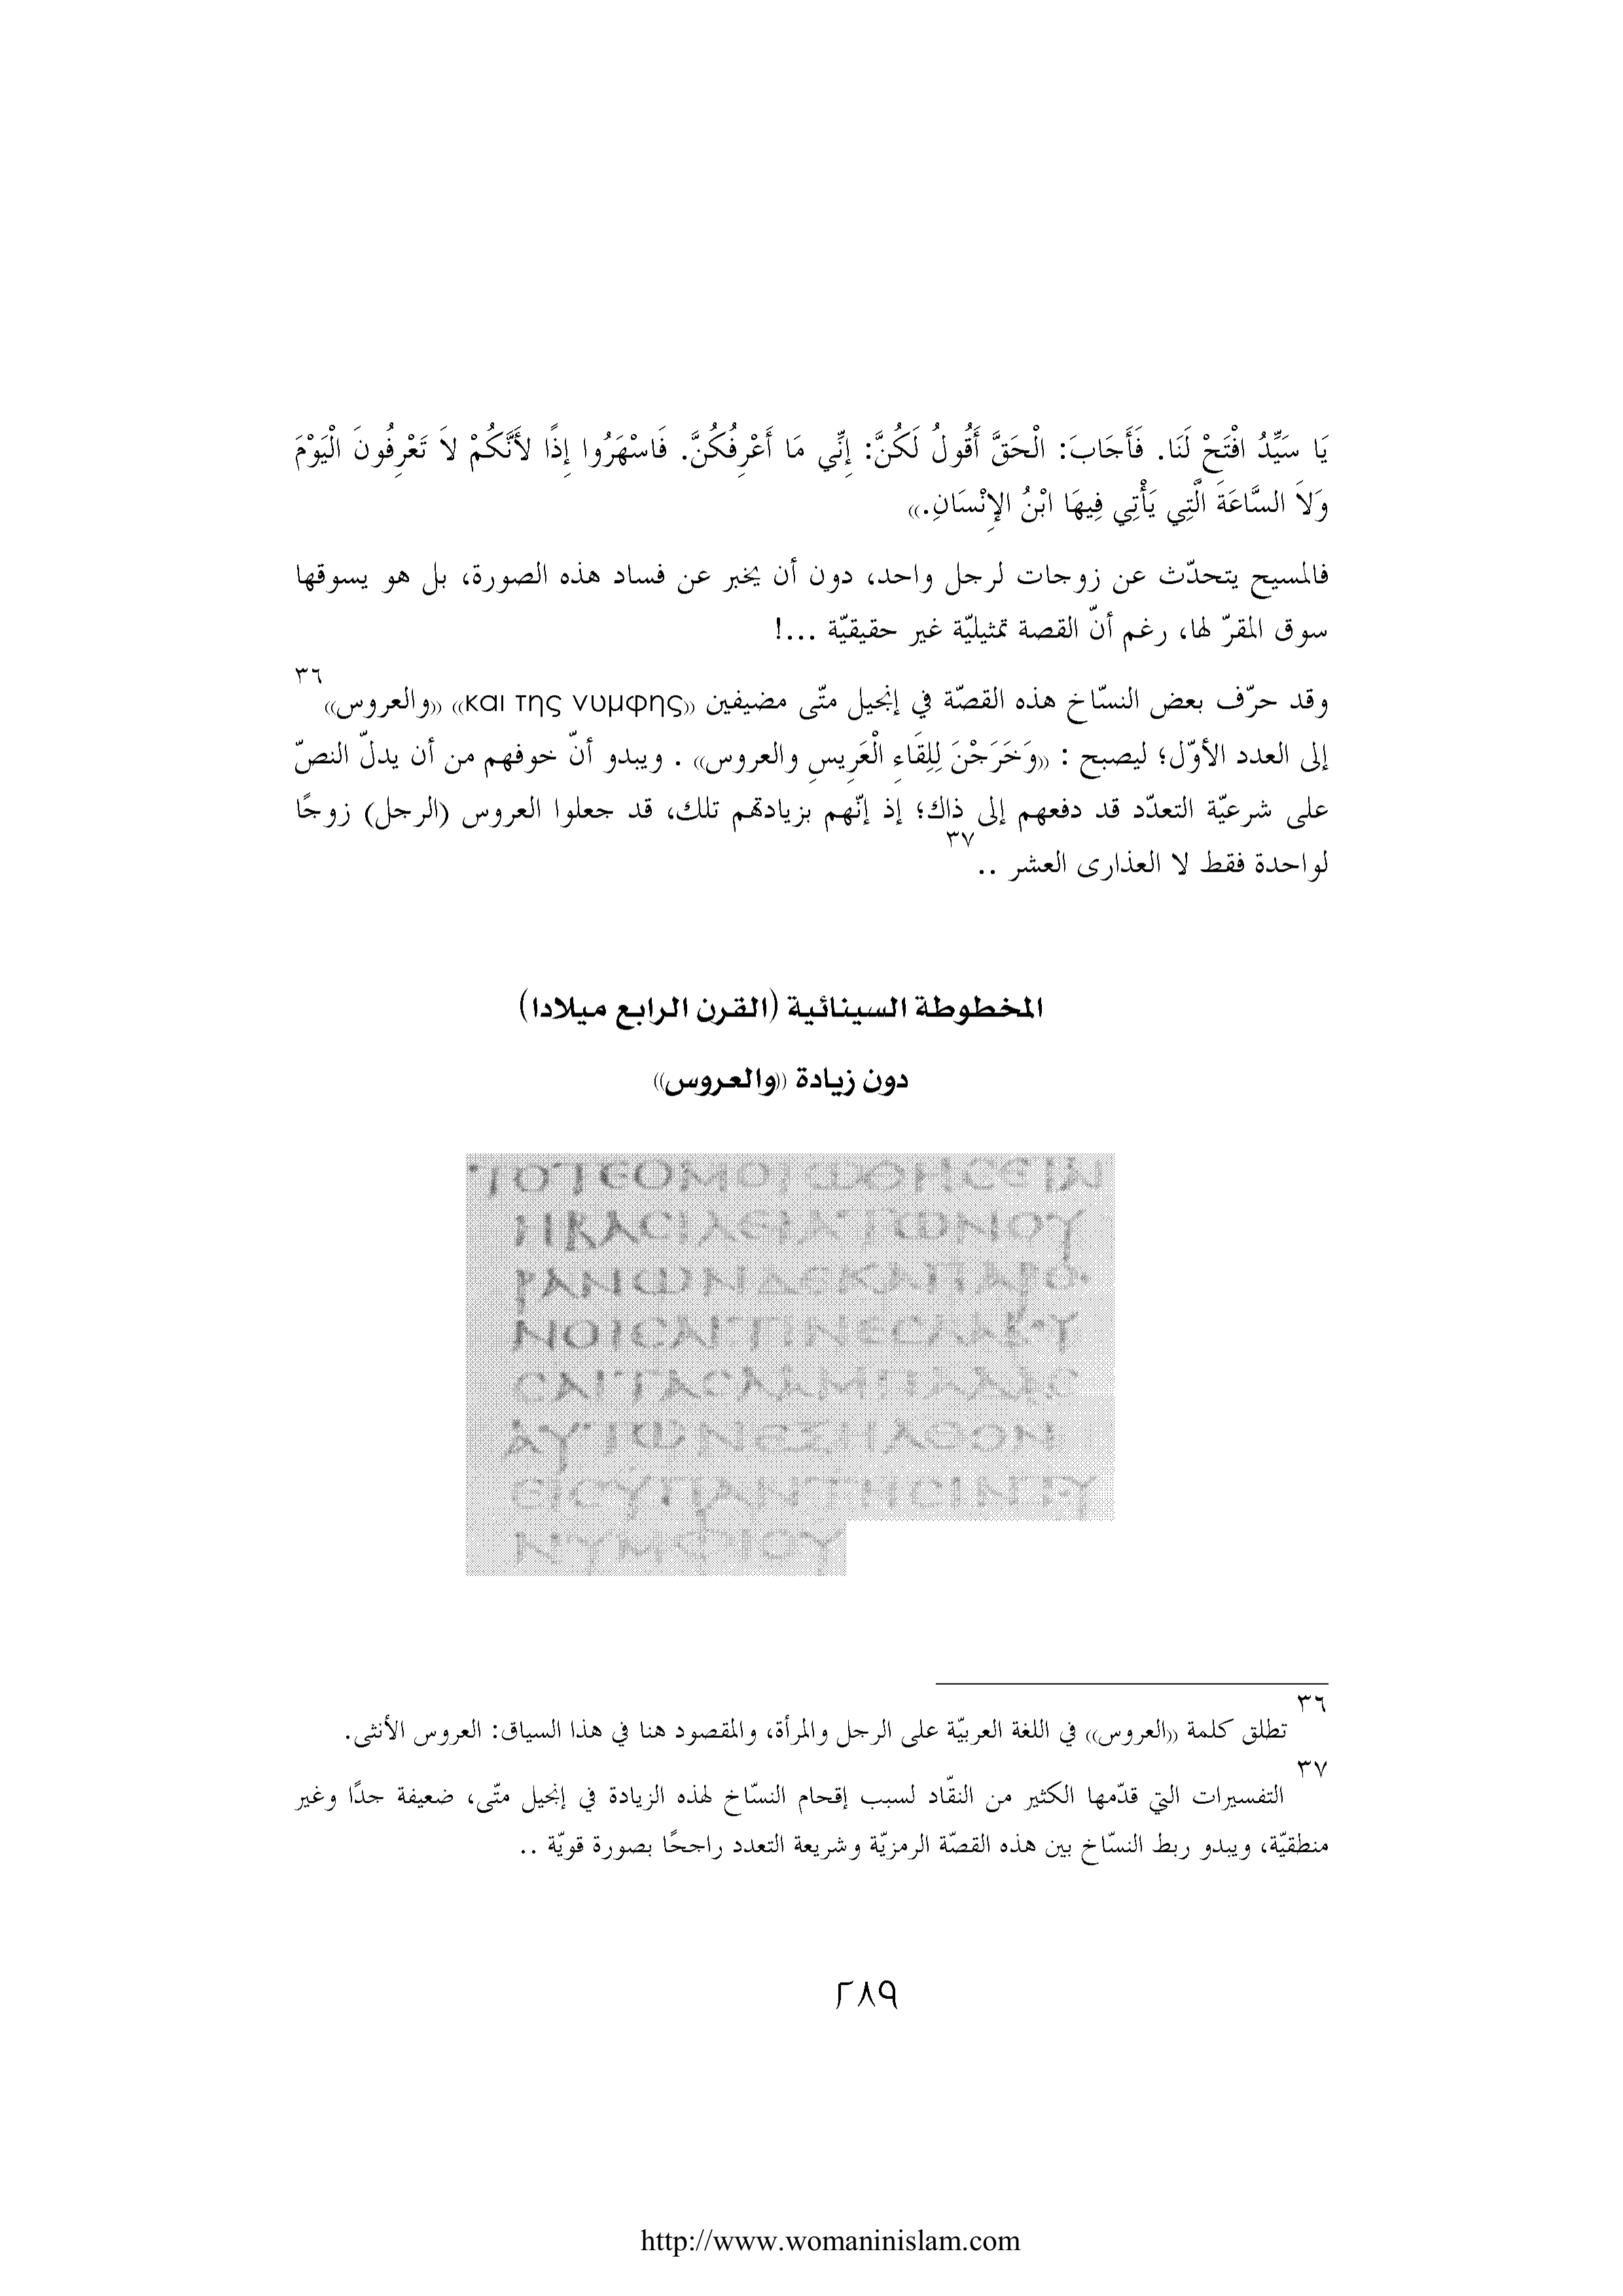 يَا سَيِّدُ افْتَحْ لَنَا. فَأَجَابَ: الْحَقَّ أَقُولُ لَكُنَّ: إِنِّي مَا أَعْرِفُكُنَّ. فَاسْهَرُوا إِذًا لأَنَّكُمْ لاَ تَعْرِفُونَ الْيَوْمَ
وَلاَ السَّاعَةَ الَّتِي يَأْتِي فِيهَا ابْنُ الإِنْسَانِ.»
فالمسيح يتحدّث عن زوجات لرجل واحد، دون أن يخبر عن فساد هذه الصورة، بل هو يسوقها
سوق المقرّ لها، رغم أنّ القصة تمثيليّة غير حقيقيّة ...!
وقد حرّف بعض النسّاخ هذه القصّة في إنجيل متّى مضيفين «και της νυμφης» «والعروس»٣٦
إلى العدد الأوّل؛ ليصبح : «وَخَرَجْنَ لِلِقَاءِ الْعَرِيسِ والعروس» . ويبدو أنّ خوفهم من أن يدلّ النصّ
على شرعيّة التعدّد قد دفعهم إلى ذاك؛ إذ إنّهم بزيادتهم تلك، قد جعلوا العروس (الرجل) زوجًا
لواحدة فقط لا العذارى العشر ..٣٧
المخطوطة السينائية (القرن الرابع ميلادا)
دون زيادة «والعروس»
ΤΟΤΕΟΜΟΙΩΘΗСΕΙΝ
ΗΒΑСΙΛΕΙΑΤΩΝΟΥ
ΡΑΝΩΝΔΕΚΑΠΑΡΘΕ
ΝΟΙСΑΙΤΙΝΕСΛΑΒΟΥ
СΑΙΤΑСΛΑΜΠΑΔΑС
ΑΥΤΩΝΕΞΗΛΘΟΝ
ΕΙСΥΠΑΝΤΗСΙΝΤΟΥ
ΝΥΜΦΙΟΥ
٣٦ تطلق كلمة «العروس» في اللغة العربيّة على الرجل والمرأة، والمقصود هنا في هذا السياق: العروس الأنثى.
٣٧ التفسيرات التي قدّمها الكثير من النقّاد لسبب إقحام النسّاخ لهذه الزيادة في إنجيل متّى، ضعيفة جدًا وغير
منطقيّة، ويبدو ربط النسّاخ بين هذه القصّة الرمزيّة وشريعة التعدد راجحًا بصورة قويّة ..
٢٨٩
http://www.womaninislam.com